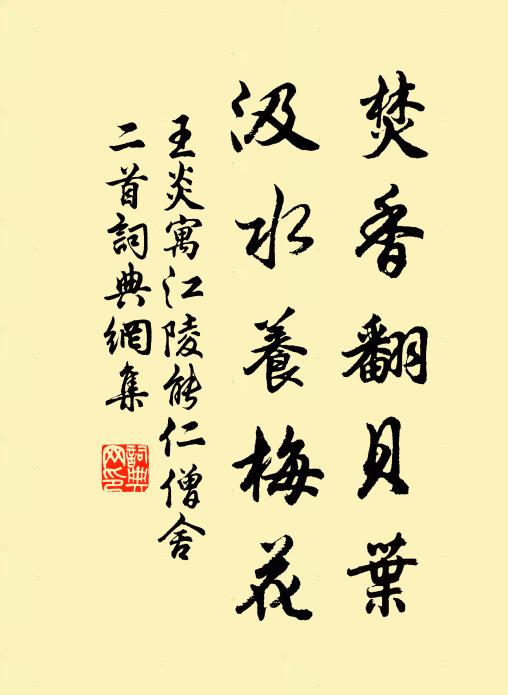 焚香翻貝葉
汲水養梅花
王炎寓江陵能仁僧舍
二首詞典網集
詞典
网印